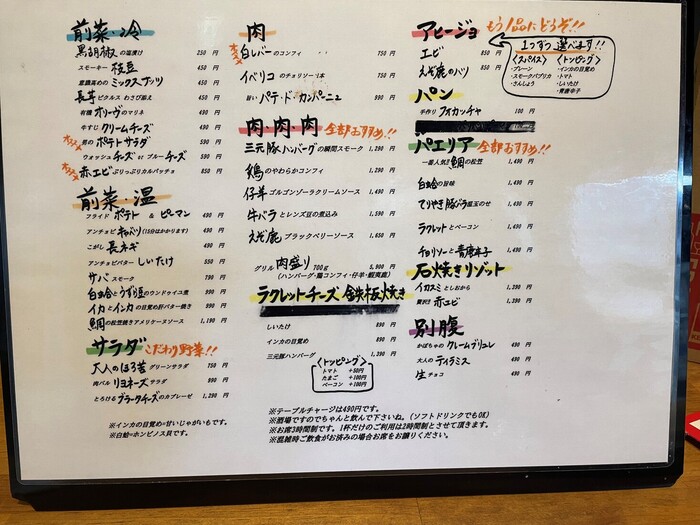 前菜・冷
黒胡椒の塩漬け 250 円
スモーキー枝豆 450 円
意識高めのミックスナッツ 450 円
長芋ピクルス わさび添え 450 円
有機 オリーブのマリネ 490 円
牛すじ クリームチーズ 490 円
オススメ 男の ポテトサラダ 590 円
ウォッシュチーズ or ブルーチーズ 590 円
オススメ 赤エビぷりっぷりカルパッチョ 850 円
前菜・温
フライド ポテト & ピーマン 490 円
アンチョビ キャベツ(15分はかかります) 490 円
こがし 長ネギ 490 円
アンチョビバター しいたけ 550 円
サバ スモーク 790 円
白蛤とうずら豆のウンドゥイユ煮 990 円
イカとインカの目覚め肝バター焼き 990 円
鯛の松笠焼きアメリケーヌソース 1,190 円
サラダ こだわり野菜!!
大人のほろ苦グリーンサラダ 750 円
肉バル リヨネーズサラダ 990 円
とろける ブラータチーズのカプレーゼ 1,290 円
※インカの目覚め=甘いじゃがいもです。
※白蛤=ホンビノス貝です。
肉
オススメ 白レバーのコンフィ 750 円
イベリコ のチョリソー1本 750 円
旨い パテ・ド・カンパーニュ 990 円
肉・肉・肉 全部おすすめ!!
三元豚ハンバーグの瞬間スモーク 1,290 円
鶏のやわらかコンフィ 1,290 円
仔羊 ゴルゴンゾーラクリームソース 1,490 円
牛バラとレンズ豆の煮込み 1,590 円
えぞ鹿 ブラックベリーソース 1,650 円
グリル 肉盛り 700g 5,900 円
(ハンバーグ・鶏コンフィ・仔羊・蝦夷鹿)
ラクレットチーズ 鉄板焼き
しいたけ 890 円
インカの目覚め 890 円
三元豚ハンバーグ 1,390 円
<トッピング>
トマト +50円
たまご +100円
ベーコン +100円
※テーブルチャージは490円です。
※酒場ですのでちゃんと飲んで下さいね。(ソフトドリンクでもOK)
※お席3時間制です。1杯だけのご利用は2時間制とさせて頂きます。
※混雑時ご飲食がお済みの場合お席をお譲りください。
アヒージョ もう1品にどうぞ!!
エビ 850 円
えぞ鹿のハツ 850 円
1つずつ選べます!!
<スパイス>
プレーン
スモークパプリカ
さんしょう
<トッピング>
インカの目覚め
トマト
しいたけ
青唐辛子
パン
手作り フォカッチャ 100 円
パエリア 全部おすすめ!!
一番人気! 鯛の松笠 1,490 円
白蛤の旨味 1,490 円
てりやき豚バラ温玉のせ 1,490 円
ラクレットとベーコン 1,490 円
チョリソーと青唐辛子 1,490 円
石焼きリゾット
イカスミとしおから 1,290 円
贅沢! 赤エビ 1,390 円
別腹
かぼちゃのクレームブリュレ 490 円
大人の ティラミス 490 円
生チョコ 490 円